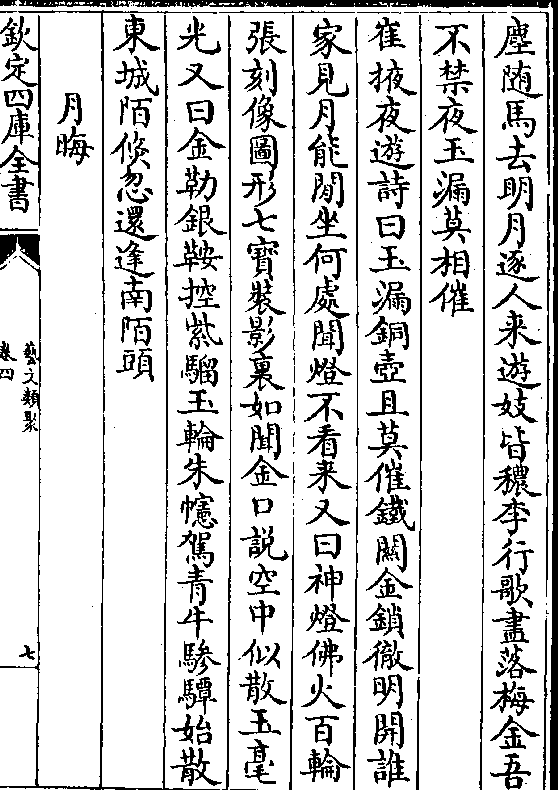 塵随馬去明月逐人来遊妓皆穠李行歌盡落梅金吾
不禁夜玉漏莫相催
崔掖夜遊詩曰玉漏銅壺且莫催鐵闗金鎖徹明開誰
家見月能閒坐何處聞燈不看来又曰神燈佛火百輪
張刻像圖形七寶裝影裏如聞金口説空中似散玉毫
光又曰金勒銀鞍控紫騮玉輪朱幰駕青牛驂驔始散
東城陌倐忽還逢南陌頭
月晦
欽定四庫全書
藝文類聚
卷四
七